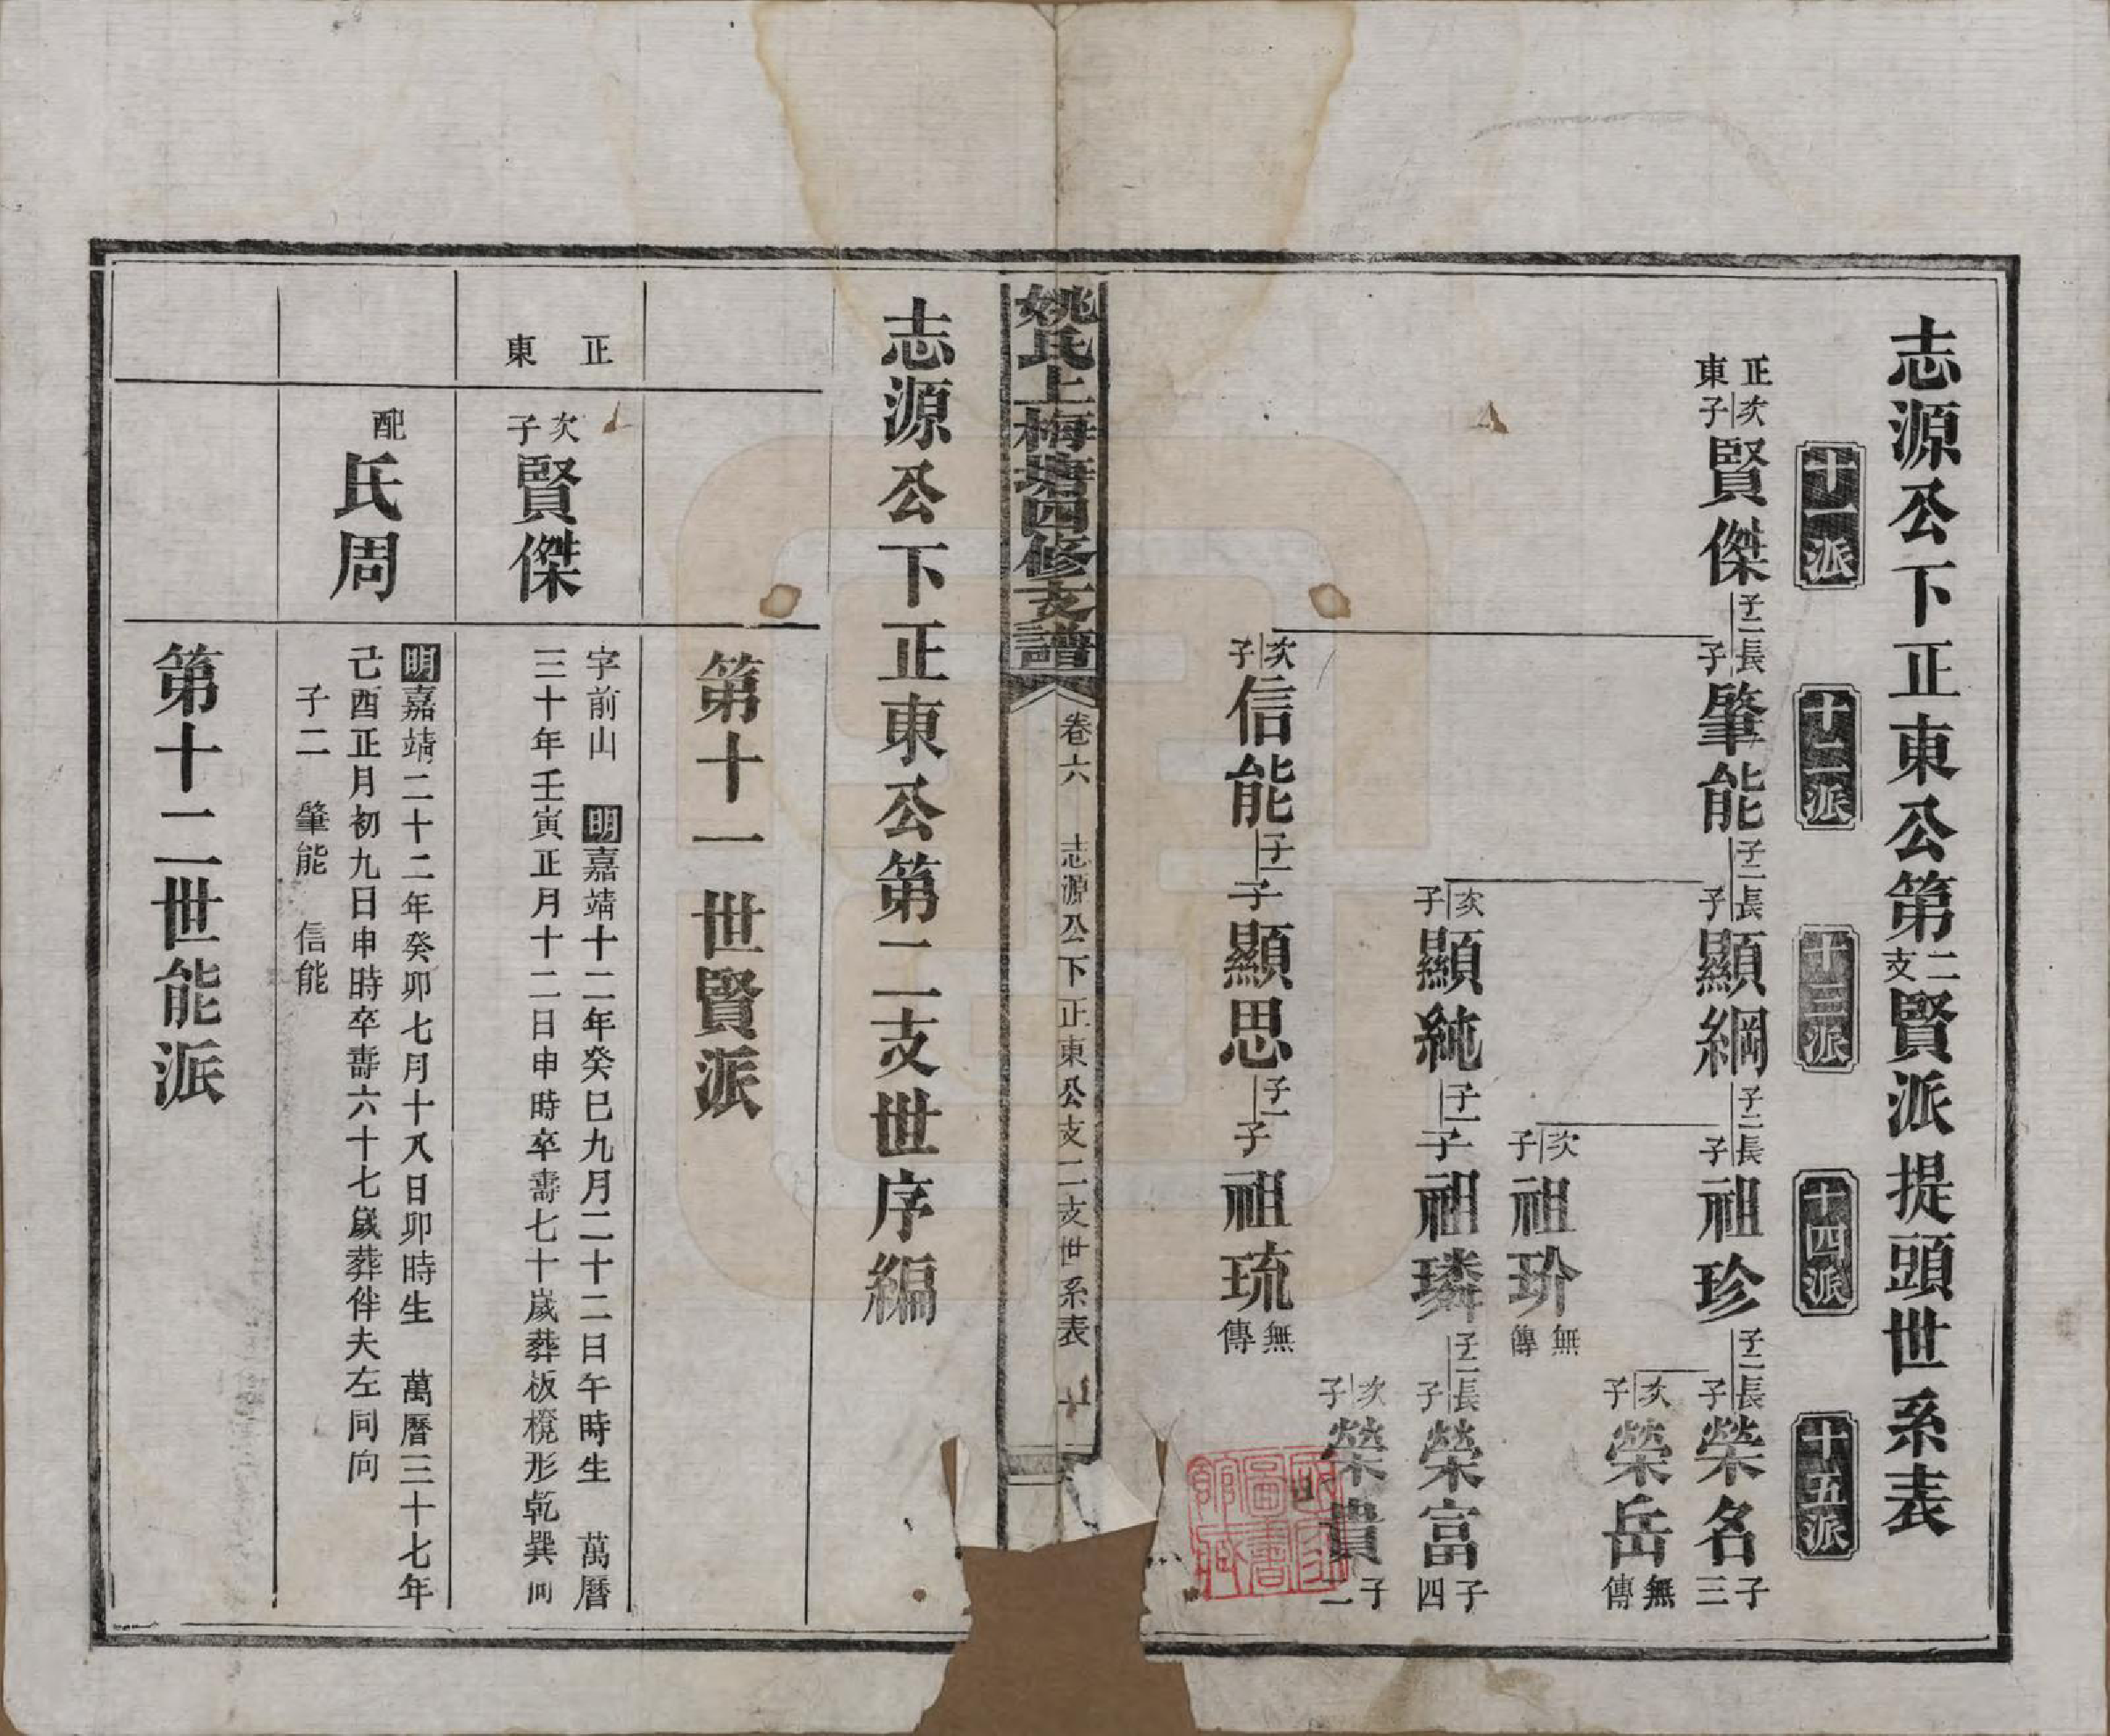 志源公下正東公第二支賢派提頭世系表
十一派
十二派
十三派
十四派
十五派
正東次子賢傑子二
長子肇能子二
長子顯綱子二
長子祖珍子二
長子榮名子三
次子榮岳無傳
次子祖玠無傳
次子顯純子一
子祖璘子二
長子榮富子四
次子榮貴子二
次子信能子一
子顯思子一
子祖琉無傳
姚氏上梅塘四修支譜
卷六
志源公下正東公支二支世系表
志源公下正東公第二支世序編
第十一世賢派
正東
次子賢傑
字前山 明嘉靖十二年癸巳九月二十二日午時生 萬曆
三十年壬寅正月十二日申時卒壽七十歲葬板櫈形乾巽向
配氏周
明嘉靖二十二年癸卯七月十八日卯時生 萬曆三十七年
己酉正月初九日申時卒壽六十七歲葬伴夫左同向
子二 肇能 信能
第十二世能派